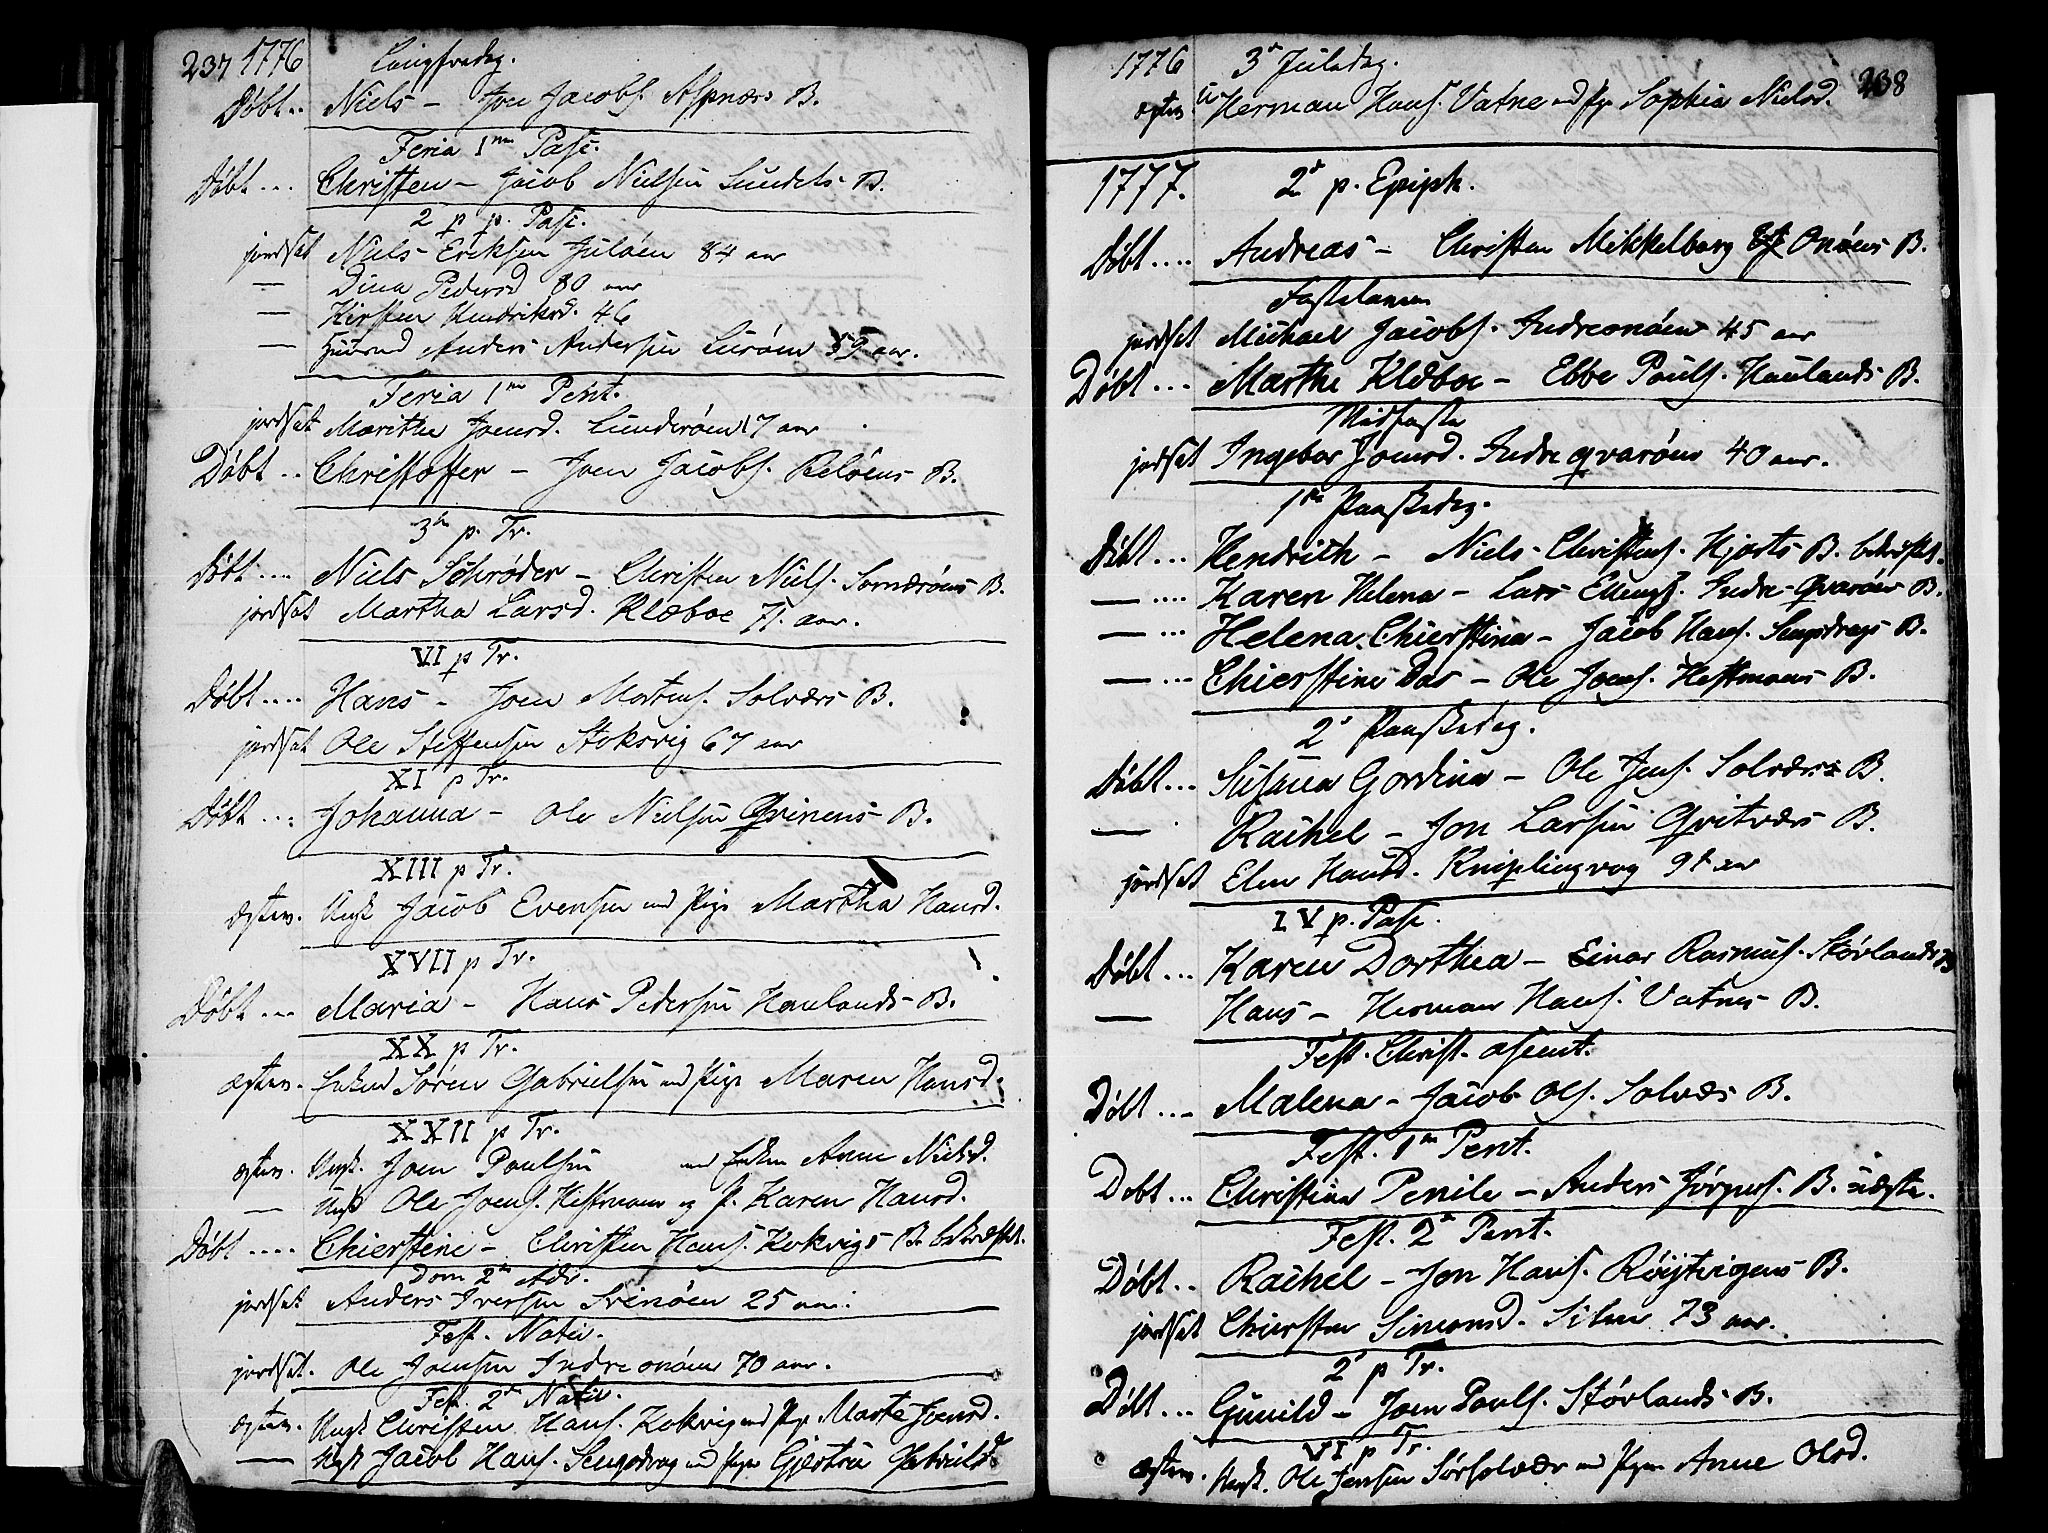 237 1776 Langfredag.
Døbt.. Niels - Joen Jacobs. Aspnærs B.
Feria 1ma Pasc.
Døbt... Christen - Jacob Nielsen Lundets B.
2 p. p. Pasc.
jordsat Niels Eriksen Juløen 84 aar
— Dina Pedersd 80 aar
— Kirsten Hendriksd. 46
— Anders Andersen Lurøen 59 aar.
Feria 1ma Pent.
jordsat Marithe Joensd. Lunderøen 17 aar
Døbt.. Christoffer - Joen Jacobs. Reløens B.
3tia p. Tr.
Døbt.... Niels Schrøder - Christen Niels. Somærøens B.
jordsat Martha Larsd. Klæboe 71. aar.
VI p Tr.
Døbt.... Hans - Joen Mortens. Solværs B.
jordsat Ole Steffensen Stoksvig 67 aar
XI p Tr.
Døbt... Johanna - Ole Nielsen Qvinens B.
XIII p Tr.
ægtev. Ungk Jacob Evensen med Pige Martha Hansd.
XVII p Tr.
Døbt... Maria - Hans Pedersen Haulands B.
XX p Tr.
ægtev. Enkem Søren Gabrielsen med Pige Maren Hansd.
XXII p Tr.
ægtev. Ungk. Joen Poulsen med Enken Anne Nielsd.
— Ungk Ole Joens. Hestmoen og P. Karen Hansd.
Døbt.... Chierstine - Christen Hans. Kokvigs B. bekræftet.
Dom 2da Adv.
jordsat Anders Iversen Svinøen 25 aar.
Fest. Nativ.
jordsat. Ole Joensen Indre onøen 70 aar.
Fest. 2da Nativ.
ægtev. Ungk Christen Hans. Kokvig med Pige Marte Joensd.
— Ungk Jacob Hans. Sengsdrag med Pigen Gjertru Gabrielsd
1776 3die Juledag. 238
ægtev. Herman Hans. Vatne med Pige Sophia Nielsd.
1777. 2da p. Epiph.
Døbt.... Andreas - Christen Mikkelborg Onøens B.
Fastelaven
jordsat Michael Jacobs. Indreonøen 45 aar
Døbt... Marthe Klæboe - Ebbe Pouls. Haulands B.
Midfaste
jordsat Ingebor Joensd. Indre qvarøen 40 aar.
1ste Paaskedag.
Døbt... Hendrich - Niels Christens. Hjorts B. bekræftet.
— .... Karen Helena - Lars Ellings. Indre Qvarøes B.
— ... Helena Chierstina - Jacob Hans. Sengsdrags B.
— ... Chierstine Das - Ole Joens. Hestmoens B.
2den Paaskedag.
Døbt... Susana Gordina - Ole Jens. Solværs B.
— Rachel - Jon Larsen Qvitværs B.
jordsat Elen Hansd. Kniplingvog 91 aar
IV p. Pasc.
Døbt... Karen Dorthea - Einar Rasmus. Størlands B
— Hans - Herman Hans. Vatnes B.
Fest. Christ. ascent.
Døbt... Malena - Jacob Ols. Solvæs B.
Fest. 1ma Pent.
Døbt... Christina Penile - Anders Jørgens. B. uægte.
Fest. 2da Pent.
Døbt.. Rachel - Jon Hans. Røytvigens B.
jordsat Chiersten Simonsd. Silen 73 aar.
2da p Tr.
Døbt... Gunild - Joen Pouls. Størlands B.
VI p Tr.
ægtev. Ungk. Ole Jensen Sørsolvær med Pigen Anne Olsd.